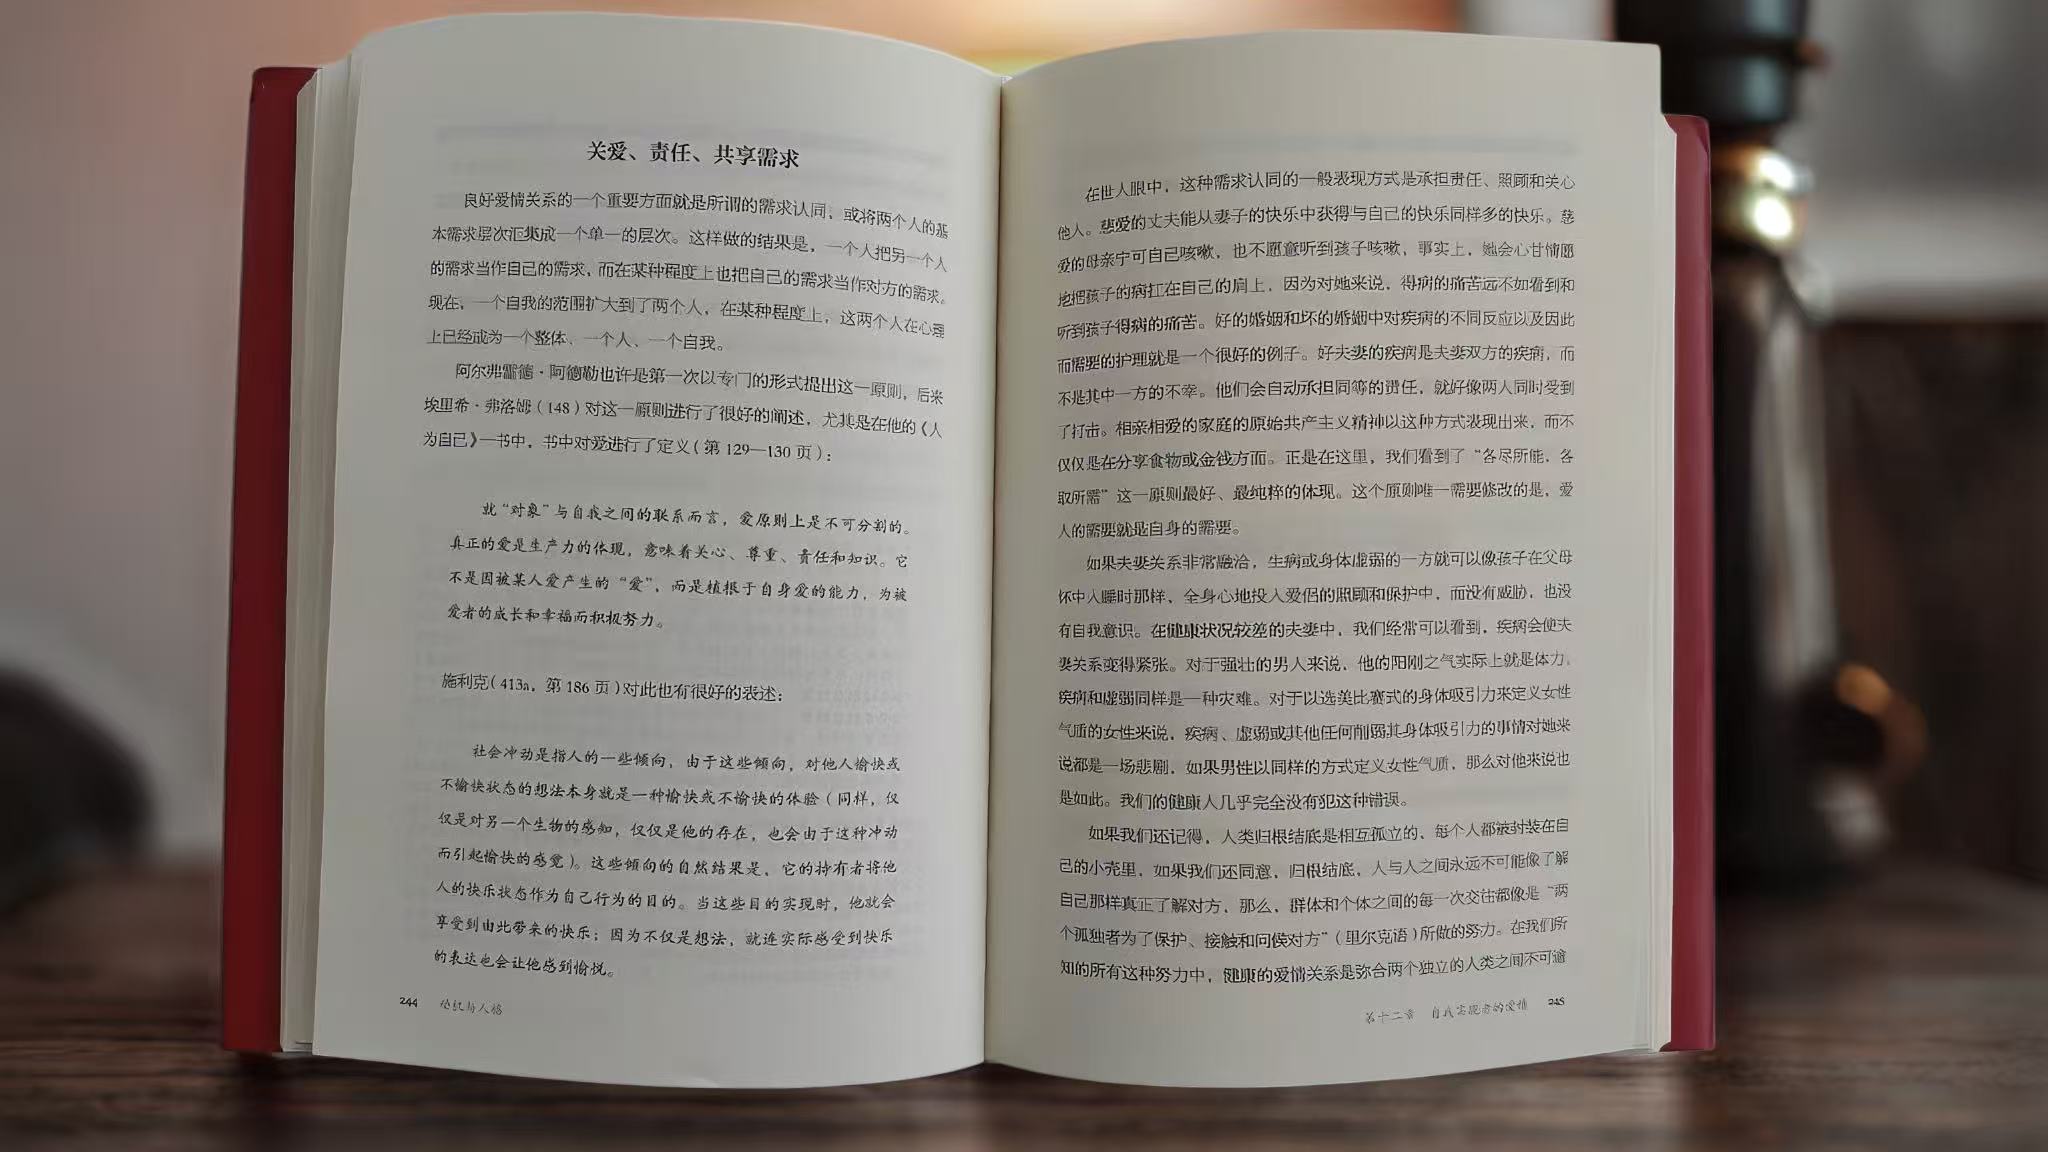 关爱、责任、共享需求
良好爱情关系的一个重要方面就是所谓的需求认同，或将两个人的基
本需求层次汇集成一个单一的层次。这样做的结果是，一个人把另一个人
的需求当作自己的需求，而在某种程度上也把自己的需求当作对方的需求。
现在，一个自我的范围扩大到了两个人，在某种程度上，这两个人在心理
上已经成为一个整体、一个人、一个自我。
阿尔弗雷德·阿德勒也许是第一次以专门的形式提出这一原则，后来
埃里希·弗洛姆（148）对这一原则进行了很好的阐述，尤其是在他的《人
为自己》一书中，书中对爱进行了定义（第 129—130 页）：
就“对象”与自我之间的联系而言，爱原则上是不可分割的。
真正的爱是生产力的体现，意味着关心、尊重、责任和知识。它
不是因被某人爱产生的“爱”，而是植根于自身爱的能力，为被
爱者的成长和幸福而积极努力。
施利克（413a，第 186 页）对此也有很好的表述：
社会冲动是指人的一些倾向，由于这些倾向，对他人愉快或
不愉快状态的想法本身就是一种愉快或不愉快的体验（同样，仅
仅是对另一个生物的感知，仅仅是他的存在，也会由于这种冲动
而引起愉快的感觉）。这些倾向的自然结果是，它的持有者将他
人的快乐状态作为自己行为的目的。当这些目的实现时，他就会
享受到由此带来的快乐；因为不仅是想法，就连实际感受到快乐
的表达也会让他感到愉悦。
244 动机与人格
在世人眼中，这种需求认同的一般表现方式是承担责任、照顾和关心
他人。慈爱的丈夫能从妻子的快乐中获得与自己的快乐同样多的快乐。慈
爱的母亲宁可自己咳嗽，也不愿意听到孩子咳嗽，事实上，她会心甘情愿
地把孩子的病扛在自己的肩上，因为对她来说，得病的痛苦远不如看到和
听到孩子得病的痛苦。好的婚姻和坏的婚姻中对疾病的不同反应以及因此
而需要的护理就是一个很好的例子。好夫妻的疾病是夫妻双方的疾病，而
不是其中一方的不幸。他们会自动承担同等的责任，就好像两人同时受到
了打击。相亲相爱的家庭的原始共产主义精神以这种方式表现出来，而不
仅仅是在分享食物或金钱方面。正是在这里，我们看到了“各尽所能，各
取所需”这一原则最好、最纯粹的体现。这个原则唯一需要修改的是，爱
人的需要就是自身的需要。
如果夫妻关系非常融洽，生病或身体虚弱的一方就可以像孩子在父母
怀中入睡时那样，全身心地投入爱侣的照顾和保护中，而没有威胁，也没
有自我意识。在健康状况较差的夫妻中，我们经常可以看到，疾病会使夫
妻关系变得紧张。对于强壮的男人来说，他的阳刚之气实际上就是体力，
疾病和虚弱同样是一种灾难。对于以选美比赛式的身体吸引力来定义女性
气质的女性来说，疾病、虚弱或其他任何削弱其身体吸引力的事情对她来
说都是一场悲剧，如果男性以同样的方式定义女性气质，那么对他来说也
是如此。我们的健康人几乎完全没有犯这种错误。
如果我们还记得，人类归根结底是相互孤立的，每个人都被封装在自
己的小壳里，如果我们还同意，归根结底，人与人之间永远不可能像了解
自己那样真正了解对方，那么，群体和个体之间的每一次交往都像是“两
个孤独者为了保护、接触和问候对方”（里尔克语）所做的努力。在我们所
知的所有这种努力中，健康的爱情关系是弥合两个独立的人类之间不可逾
第十二章 自我实现者的爱情 245